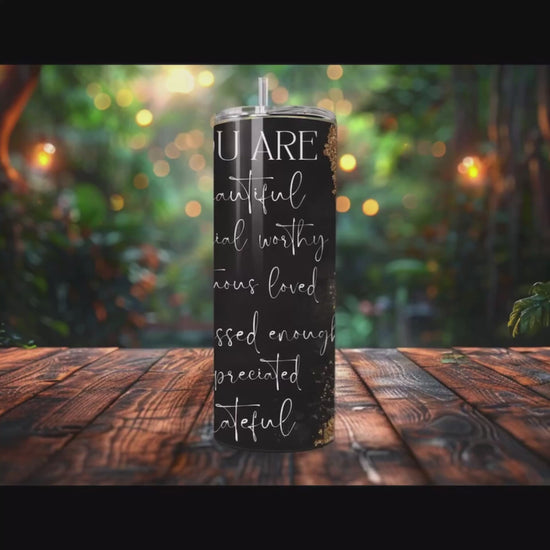 U ARE
autiful
ial worthy
ous loved
ssed enough
preciated
ateful